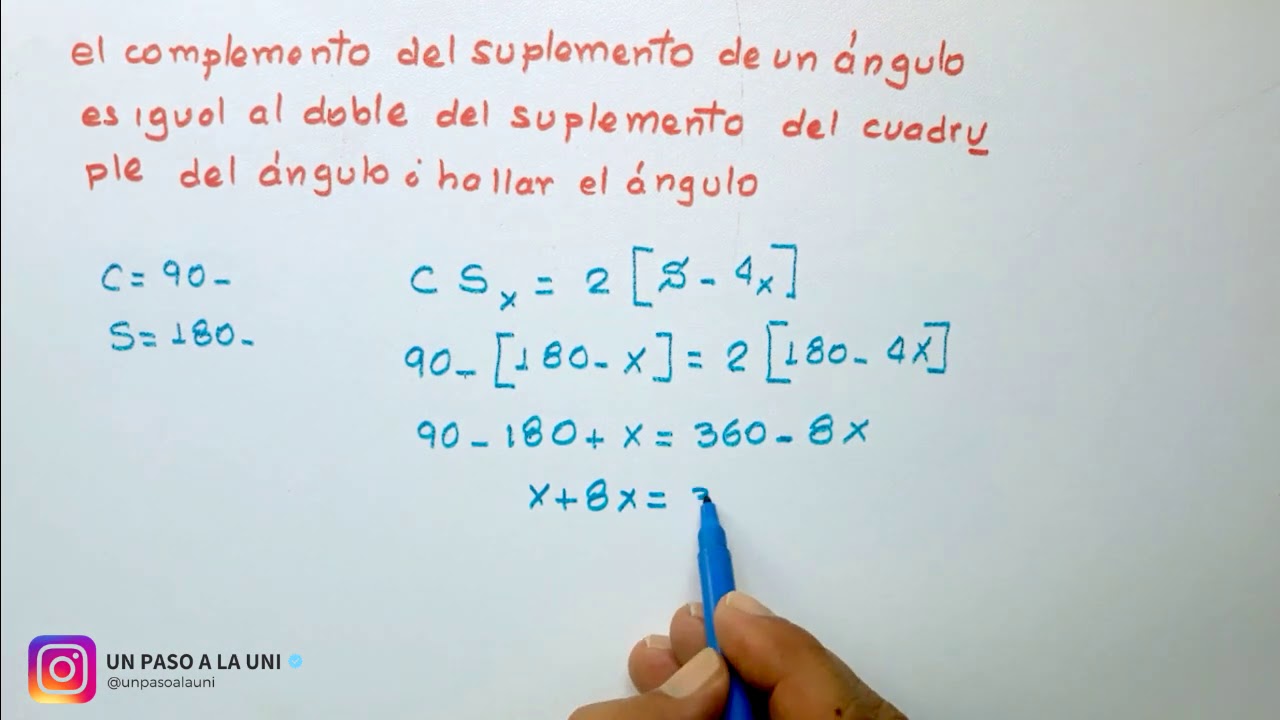 el complemento del suplemento de un ángulo
es igual al doble del suplemento del cuadru
ple del ángulo ¿ hallar el ángulo
C = 90 -
S = 180 -
C S x = 2 [S - 4x]
90 - [180 - x] = 2 [180 - 4x]
90 - 180 + x = 360 - 8x
x + 8x = 3
UN PASO A LA UNI
@unpasoalauni